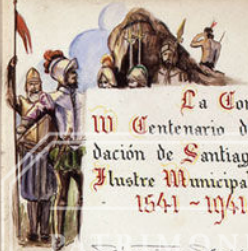 La Con
IV Centenario d
dación de Santiag
Ilustre Municipa
1541 - 1941
PATRIMON